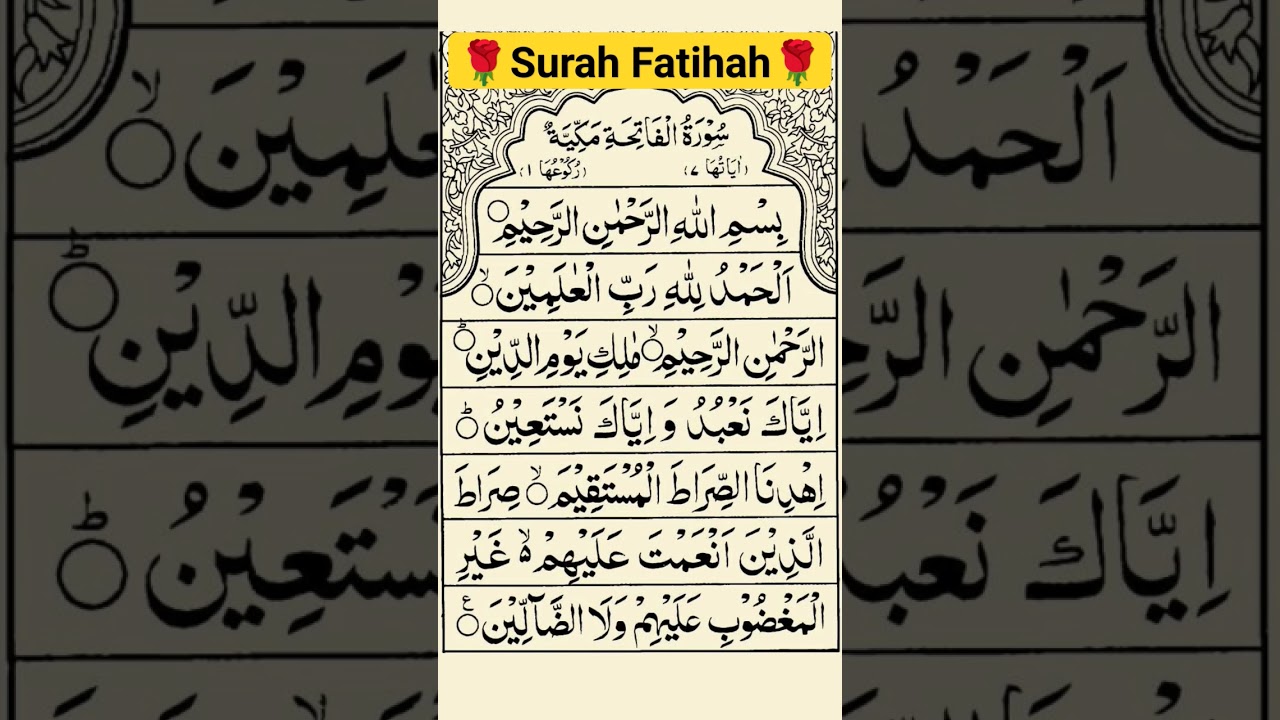 🌹Surah Fatihah🌹
سُوْرَةُ الْفَاتِحَةِ مَكِّيَّةٌ
(اٰيَاتُهَا ۷) (رُكُوْعُهَا ۱)
بِسْمِ اللّٰهِ الرَّحْمٰنِ الرَّحِيْمِ ○
اَلْحَمْدُ لِلّٰهِ رَبِّ الْعٰلَمِيْنَ ○ۙ
الرَّحْمٰنِ الرَّحِيْمِ ○ۙ مٰلِكِ يَوْمِ الدِّيْنِ ○ؕ
اِيَّاكَ نَعْبُدُ وَ اِيَّاكَ نَسْتَعِيْنُ ○ؕ
اِهْدِنَا الصِّرَاطَ الْمُسْتَقِيْمَ ○ۙ صِرَاطَ
الَّذِيْنَ اَنْعَمْتَ عَلَيْهِمْ ۙ۵ غَيْرِ
الْمَغْضُوْبِ عَلَيْهِمْ وَلَا الضَّآلِّيْنَ ○ع